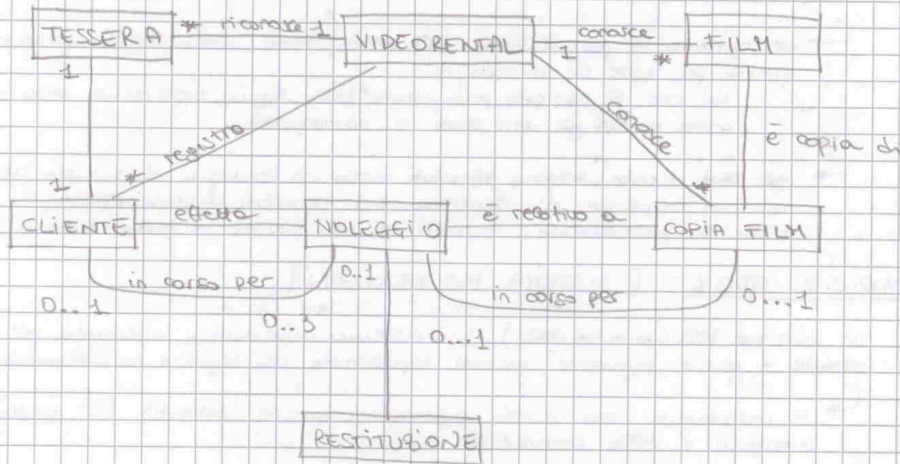 TESSERA * riconosce 1 VIDEORENTAL conosce FILM
1 1 *
registra conosce
è copia di
1 * *
CLIENTE effettua NOLEGGIO è relativo a COPIA FILM
in corso per 0..1 in corso per 0...1
0..1 0..3 0...1
RESTITUZIONE